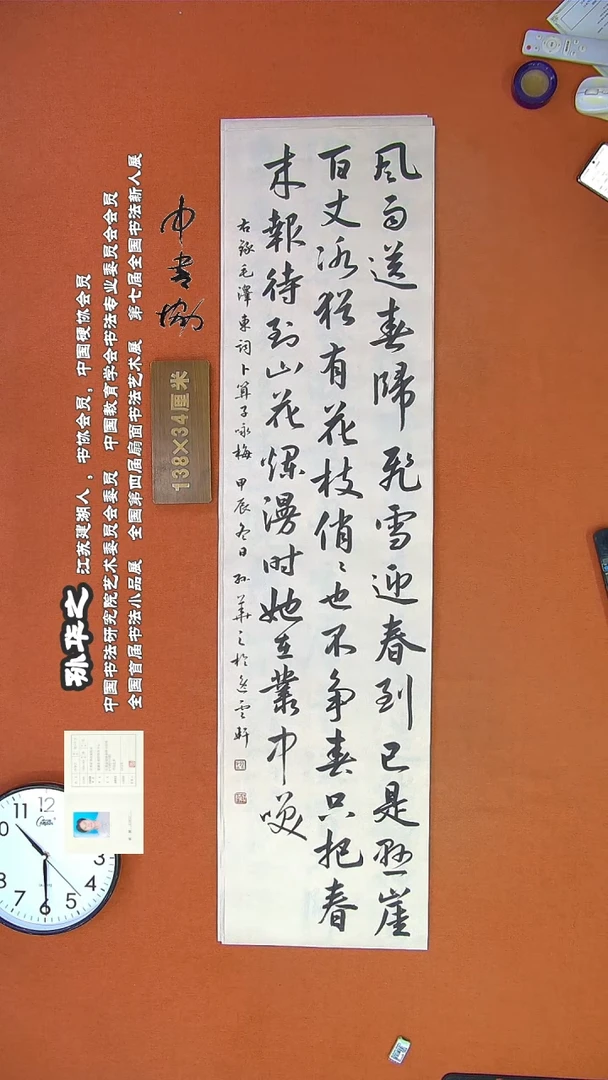 风雨送春归飞雪迎春到已是悬崖
百丈冰犹有花枝俏々也不争春只把春
来報待到山花爛漫时她在叢中笑
右録毛澤東詞卜算子咏梅 甲辰冬日孙華之於逸雲軒
中書协
138×34厘米
孙华之
江苏建湖人，书协会员，中国硬协会员
中国书法研究院艺术委员会委员 中国教育学会书法专业委员会会员
全国首届书法小品展 全国第四届扇面书法艺术展 第七届全国书法新人展
11 12
3
4
5
6
7
8